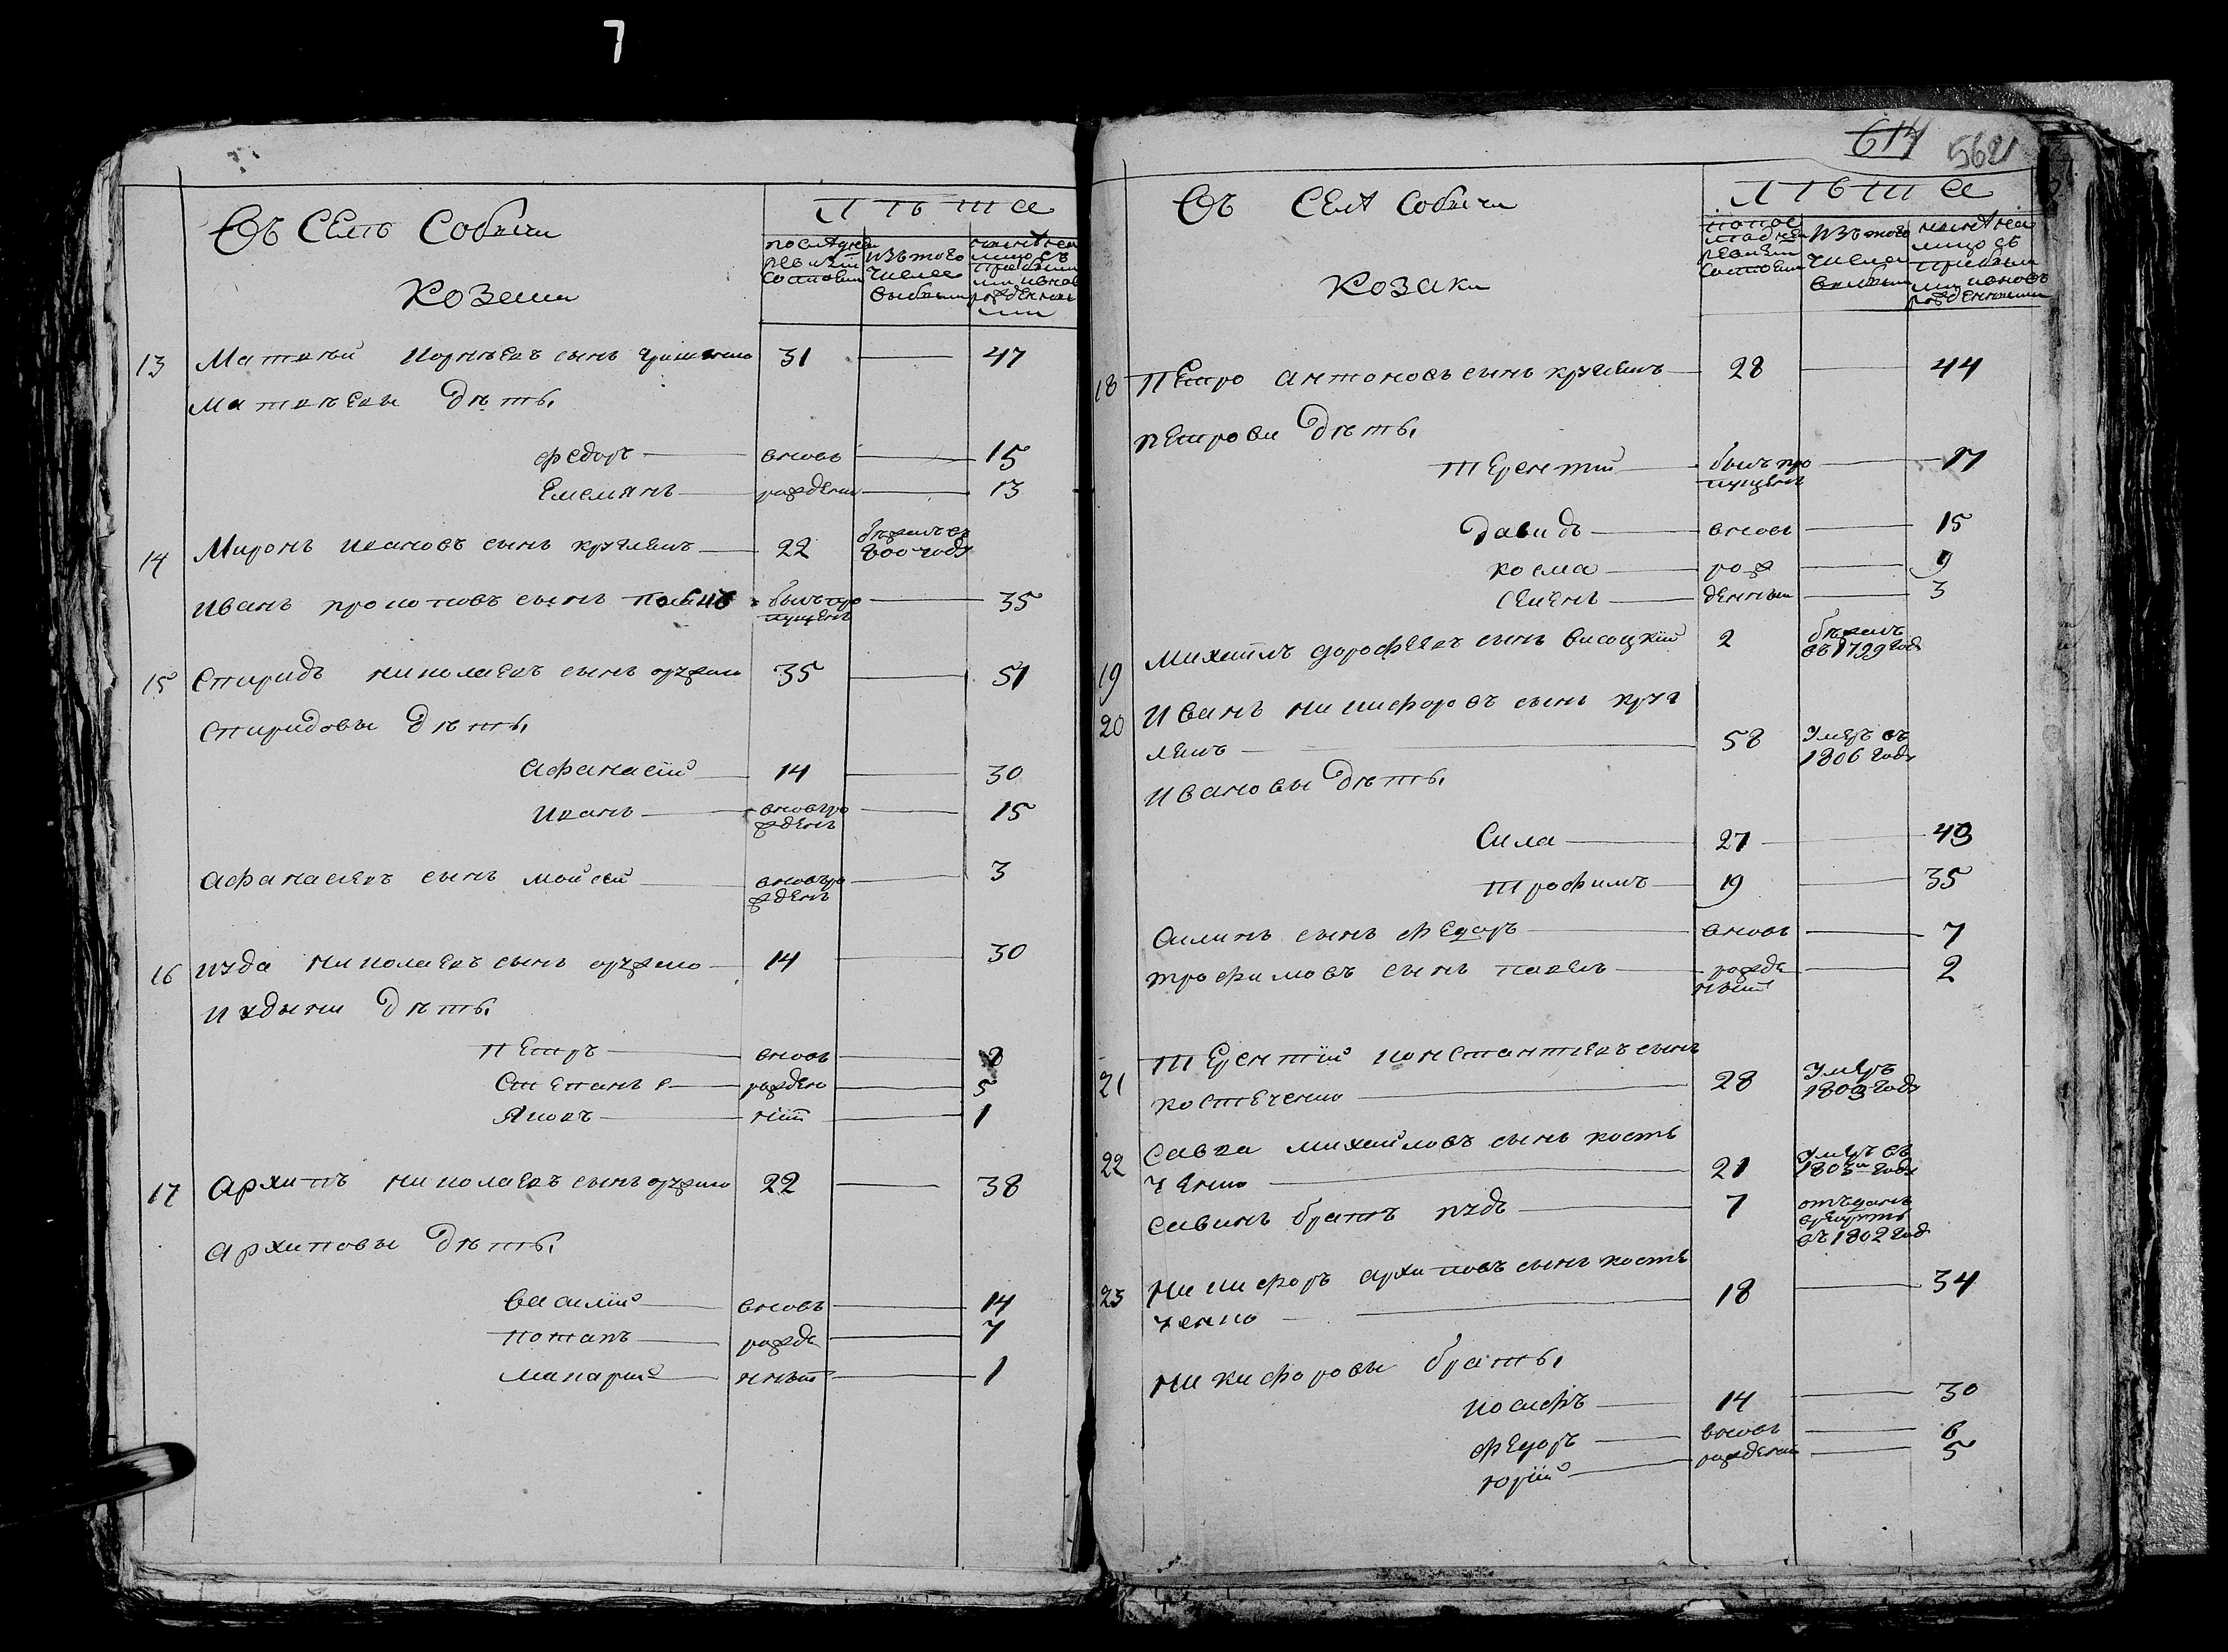 7
Въ Селѣ Собычи
Козаки
Лѣта
по следней ревизіи состояли
изъ того числа выбыли
ныне на лицо съ прибылыми и вновь рожденными
13 Матвей Корнеевъ сынъ 31 — 47
Матвеевы дети.
Федоръ — вновь — 15
Емелянъ — рожденн — 13
14 Миронъ Ивановъ сынъ Круглешъ — 22 бежалъ въ 800 году
Иванъ Прокоповъ сынъ былъ пропущенъ — 35
15 Спиридъ Николаевъ сынъ 35 — 51
Спиридовы дети.
Афанасій — 14 — 30
Иванъ — вновь рожденъ — 15
Афанасиевъ сынъ Мойсей — вновь рожденъ — 3
16 Иуда Николаевъ сынъ 14 — 30
Иудыни дети.
Петръ — вновь — 8
Степанъ — рожден — 5
Яковъ — ніи — 1
17 Архипъ Николаевъ сынъ 22 — 38
Архиповы дети.
Василій — вновь — 14
Потапъ — рожде — 7
Макарий — нныи — 1
614 5621
Въ Селѣ Собычи
Козаки
Лѣта
по последней ревизіи состояли
изъ того числа выбыли
ныне на лицо съ прибылыми и вновь рожденными
18 Петро Антоновъ сынъ Круглешъ — 28 — 44
Петрови дети.
Терентій — былъ пропущенъ — 17
Давидъ — вновь — 15
Косма — рож — 9
Семенъ — денныи — 3
19 Михаилъ Дорофеевъ сынъ Висоцкій 2 бежалъ въ 1799 году
20 Иванъ Никифоровъ сынъ Круг
лешъ — 58 Умеръ въ 1806 году
Ивановы дети.
Сила — 27 — 43
Трофимъ — 19 — 35
Силинъ сынъ Федоръ — вновь — 7
Трофимовъ сынъ Павелъ — рожденыи — 2
21 Терентій Константиевъ сынъ
Костеченко — 28 Умеръ 1803 году
22 Савка Михайловъ сынъ Косте
ченко — 21 Умеръ въ году
Савинъ братъ — 7 отъданъ врекруты въ 1802 году
23 Никифоръ Архиповъ сынъ Косте
ченко — 18 — 34
Никифоровы браты.
Иосифъ — 14 — 30
Федоръ — вновь — 6
Юрій — рожденныи — 5